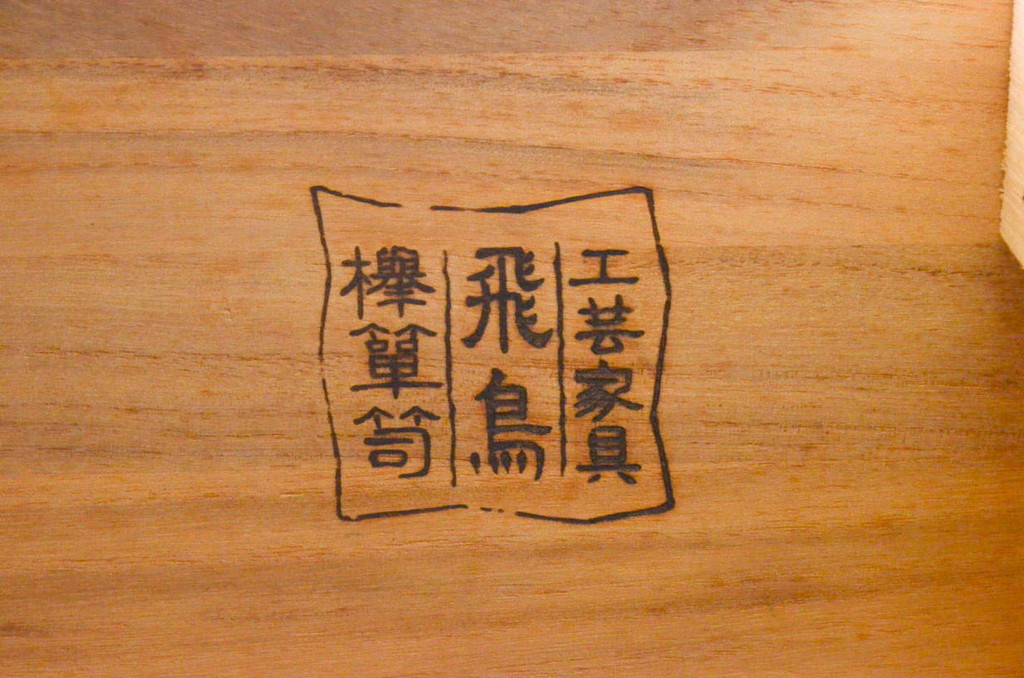 工芸家具
飛鳥
欅箪笥